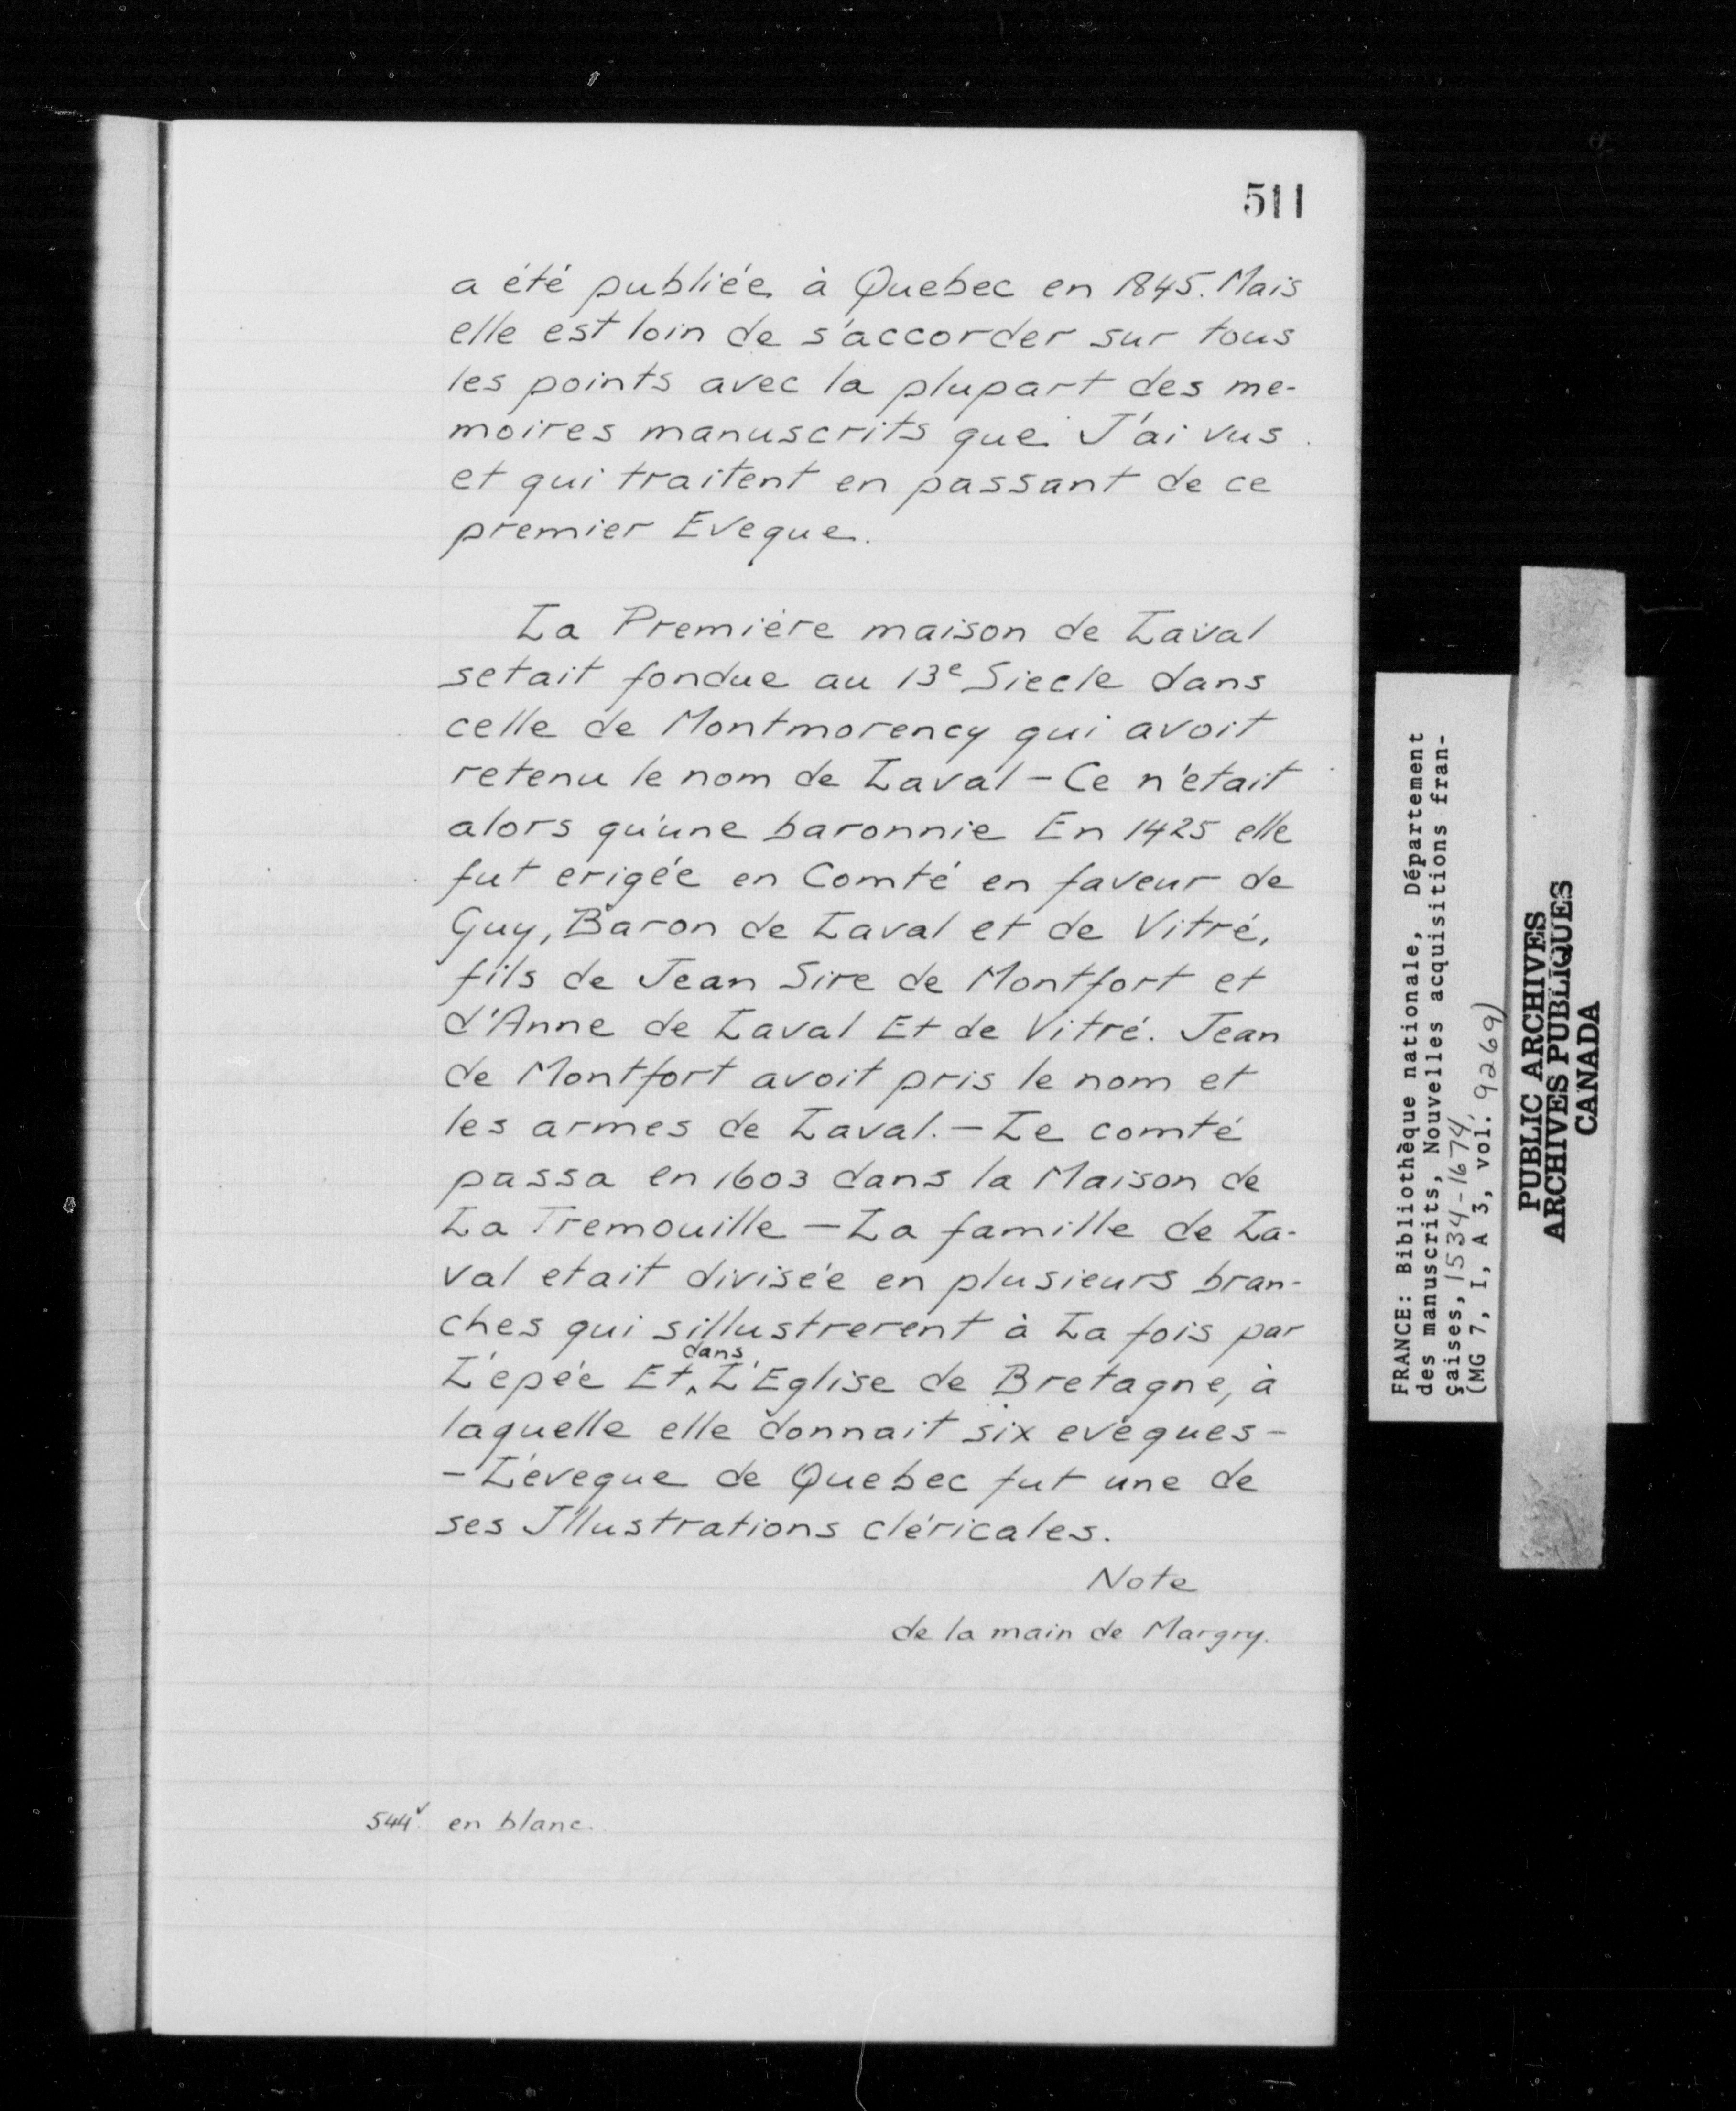 511
a été publiée à Quebec en 1845. Mais
elle est loin de s'accorder sur tous
les points avec la plupart des me-
moires manuscrits que J'ai vus
et qui traitent en passant de ce
premier Eveque.
La Premiére maison de Laval
setait fondue au 13e Siecle dans
celle de Montmorency qui avoit
retenu le nom de Laval - Ce n'etait
alors qu'une baronnie En 1425 elle
fut erigée en Comté en faveur de
Guy, Baron de Laval et de Vitré,
fils de Jean Sire de Montfort et
d'Anne de Laval Et de Vitré. Jean
de Montfort avoit pris le nom et
les armes de Laval. - Le comté
passa en 1603 dans la Maison de
La Tremouille - La famille de La-
val etait divisée en plusieurs bran-
ches qui sillustrerent à La fois par
L'épée Et dans L'Eglise de Bretagne, à
laquelle elle donnait six evêques -
- L'eveque de Quebec fut une de
ses Illustrations cléricales.
Note
de la main de Margry.
544v. en blanc.
FRANCE: Bibliothèque nationale, Département
des manuscrits, Nouvelles acquisitions fran-
çaises, 1534-1674,
(MG 7, I, A 3, vol. 9269)
PUBLIC ARCHIVES
ARCHIVES PUBLIQUES
CANADA